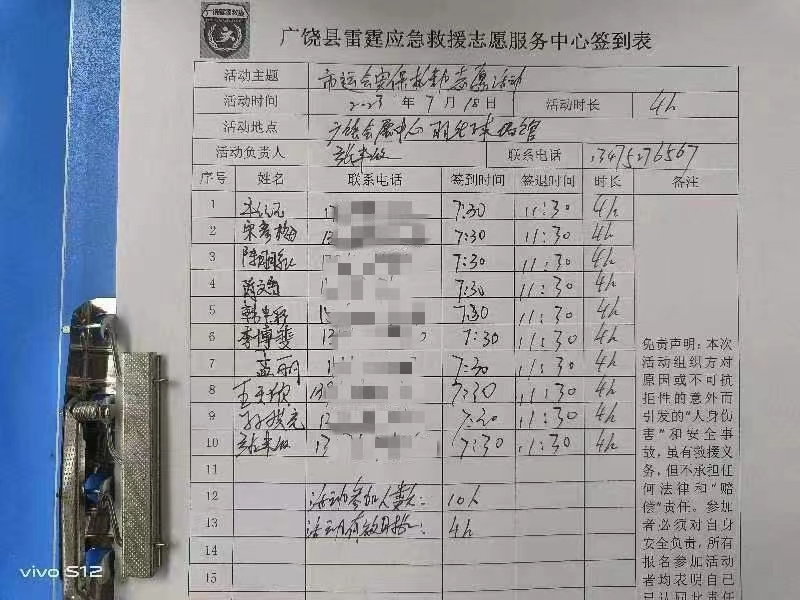 广饶县雷霆应急救援志愿服务中心签到表
活动主题 市运会安保救助志愿活动
活动时间 2023 年 7 月 18 日 活动时长 4h
活动地点 广饶会展中心 羽毛球场馆
活动负责人 联系电话 13475276567
序号 姓名 联系电话 签到时间 签退时间 时长 备注
1 7:30 11:30 4h
2 宋秀梅 13 7:30 11:30 4h
3 7:30 11:30 4h
4 7:30 11:30 4h
5 15 7:30 11:30 4h
6 李博斐 13 7:30 11:30 4h
7 孟丽 7:30 11:30 4h
8 7:30 11:30 4h
9 7:30 11:30 4h
10 13 7:30 11:30 4h
11
12 活动参加人数: 10人
13 活动有效时长: 4h
14
15
免责声明:本次
活动组织方对
原因或不可抗
拒件的意外而
引发的“人身伤
害”和安全事
故,虽有救援义
务,但不承担任
何法律和“赔
偿”责任。参加
者必须对自身
安全负责,所有
报名参加活动
者均表明自己
已认同此责任
vivo S12